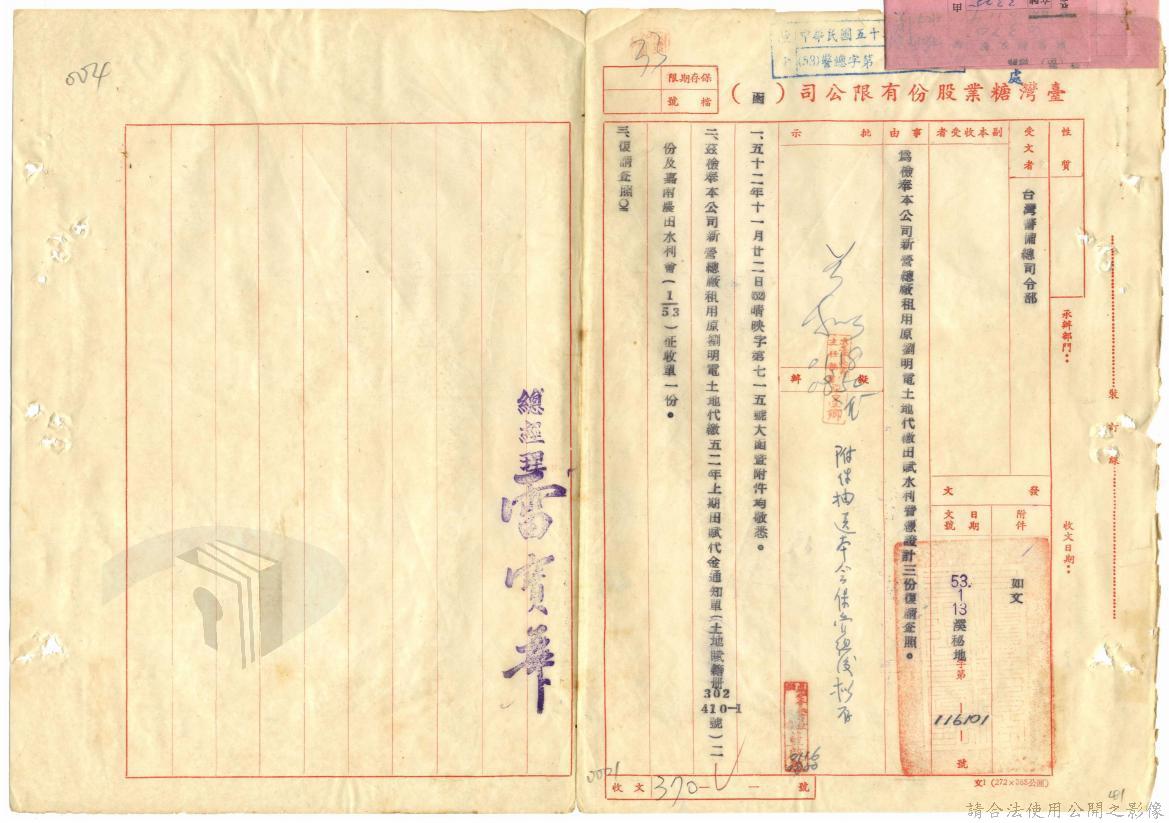 004
中華民國五十
(53)警總字第
甲
處
臺灣糖業股份有限公司（函）
保存期限
檔號
33
性質
承辦部門：
收文日期：
裝訂線
受文者
台灣警備總司令部
副本收受者
發文
附件
如文
日期
文號
53.1.13
溪秘地
字第
116101
號
事由
為檢奉本公司新營總廠租用原劉明電土地代繳田賦水利會憑證計三份復請查照。
批示
擬辦
附件抽送本會保管組後擬存
0116
一、五十二年十一月廿二日(52)晴映字第七一五號大函暨附件均敬悉。
二、茲檢奉本公司新營總廠租用原劉明電土地代繳五二年上期田賦代金通知單（土地賦籍冊302 410-1號）二
份及嘉南農田水利會（1/53）征收單一份。
三、復請查照。
總經理 雷寶華
收文 370 號
0001
文1 (272×385公厘)
請合法使用公開之影像